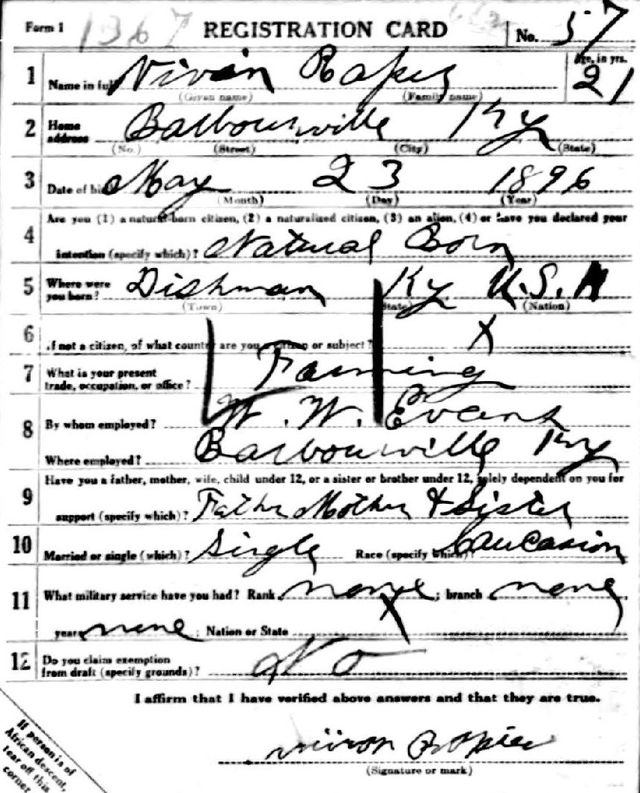 Form 1 1367 REGISTRATION CARD No. 57
1 Name in full Vivian (Given name) (Family name) Age, in yrs. 21
2 Home address Barbourville Ky
(No.) (Street) (City) (State)
3 Date of birth May 23 1896
(Month) (Day) (Year)
4 Are you (1) a natural-born citizen, (2) a naturalized citizen, (3) an alien, (4) or have you declared your
intention (specify which)? Natural Born
5 Where were you born? Dishman Ky U.S.A
(Town) (State) (Nation)
6 If not a citizen, of what country are you a citizen or subject? X
7 What is your present trade, occupation, or office? Farming
8 By whom employed? W. W. Evans
Where employed? Barbourville Ky
9 Have you a father, mother, wife, child under 12, or a sister or brother under 12, solely dependent on you for
support (specify which)? Father Mother & Sister
10 Married or single (which)? Single Race (specify which)? Caucasion
11 What military service have you had? Rank none; branch none
years none; Nation or State X
12 Do you claim exemption from draft (specify grounds)? No
I affirm that I have verified above answers and that they are true.
(Signature or mark)
If person is of
African descent,
tear off this
corner.